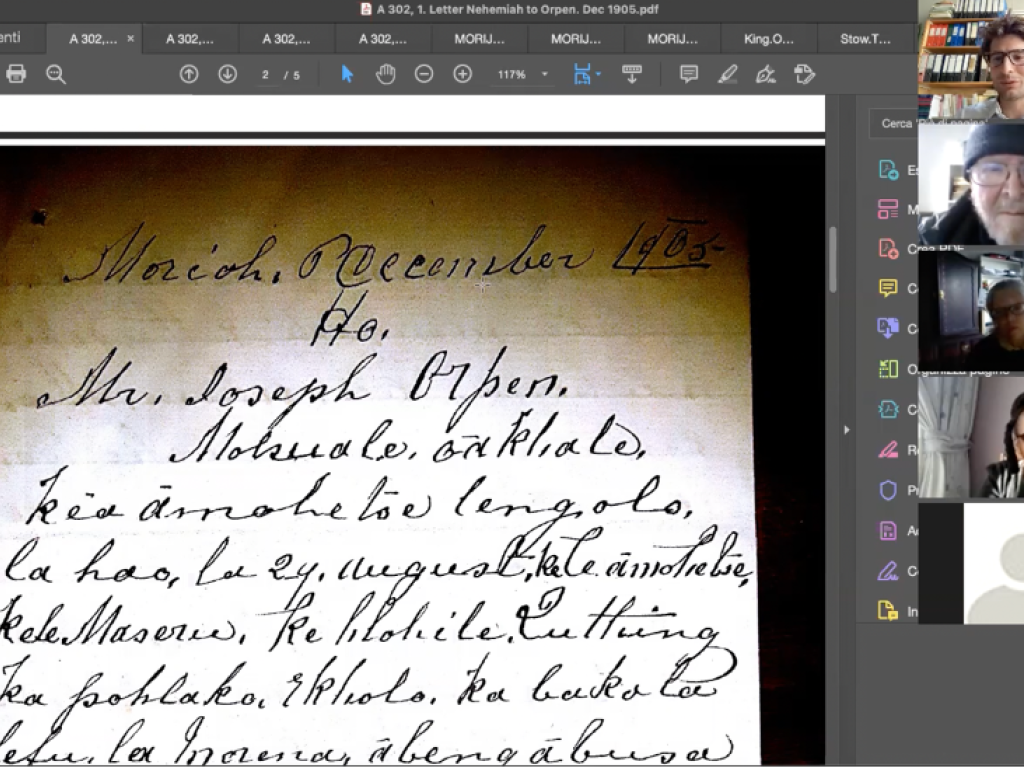 A 302, 1. Letter Nehemiah to Orpen. Dec 1905.pdf
enti A 302,... × A 302,... A 302,... A 302,... MORIJ... MORIJ... MORIJ... King.O... Stow.T...
2 / 5 117%
Cerca
Moriah. December 1905
Ho.
Mr. Joseph Orpen.
Mohuale. oa khale.
kea amohetse lengolo.
la hao, la 24. August, ke le amohetse,
ke le Maseru. ke hlohile. Quthing
ka pohlako. ekholo. ka baka la
lefu. la Morena.
Crea PDF
Organizza pagine